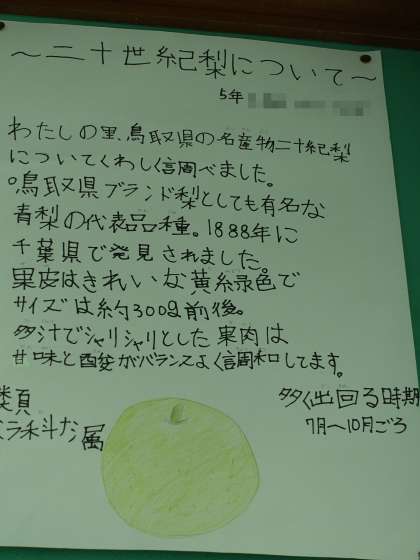 ～二十世紀梨について～
5年
わたしの里、鳥取県の名産物二十紀梨
についてくわしく調べました。
○鳥取県ブランド梨としても有名な
青梨の代表品種。1888年に
千葉県で発見されました。
果皮はきれいな黄緑色で
サイズは約300g前後。
多汁でシャリシャリとした果肉は
甘味と酸がバランスよく調和してます。
類
多く出回る時期
バラ科ナシ属
7月～10月ごろ